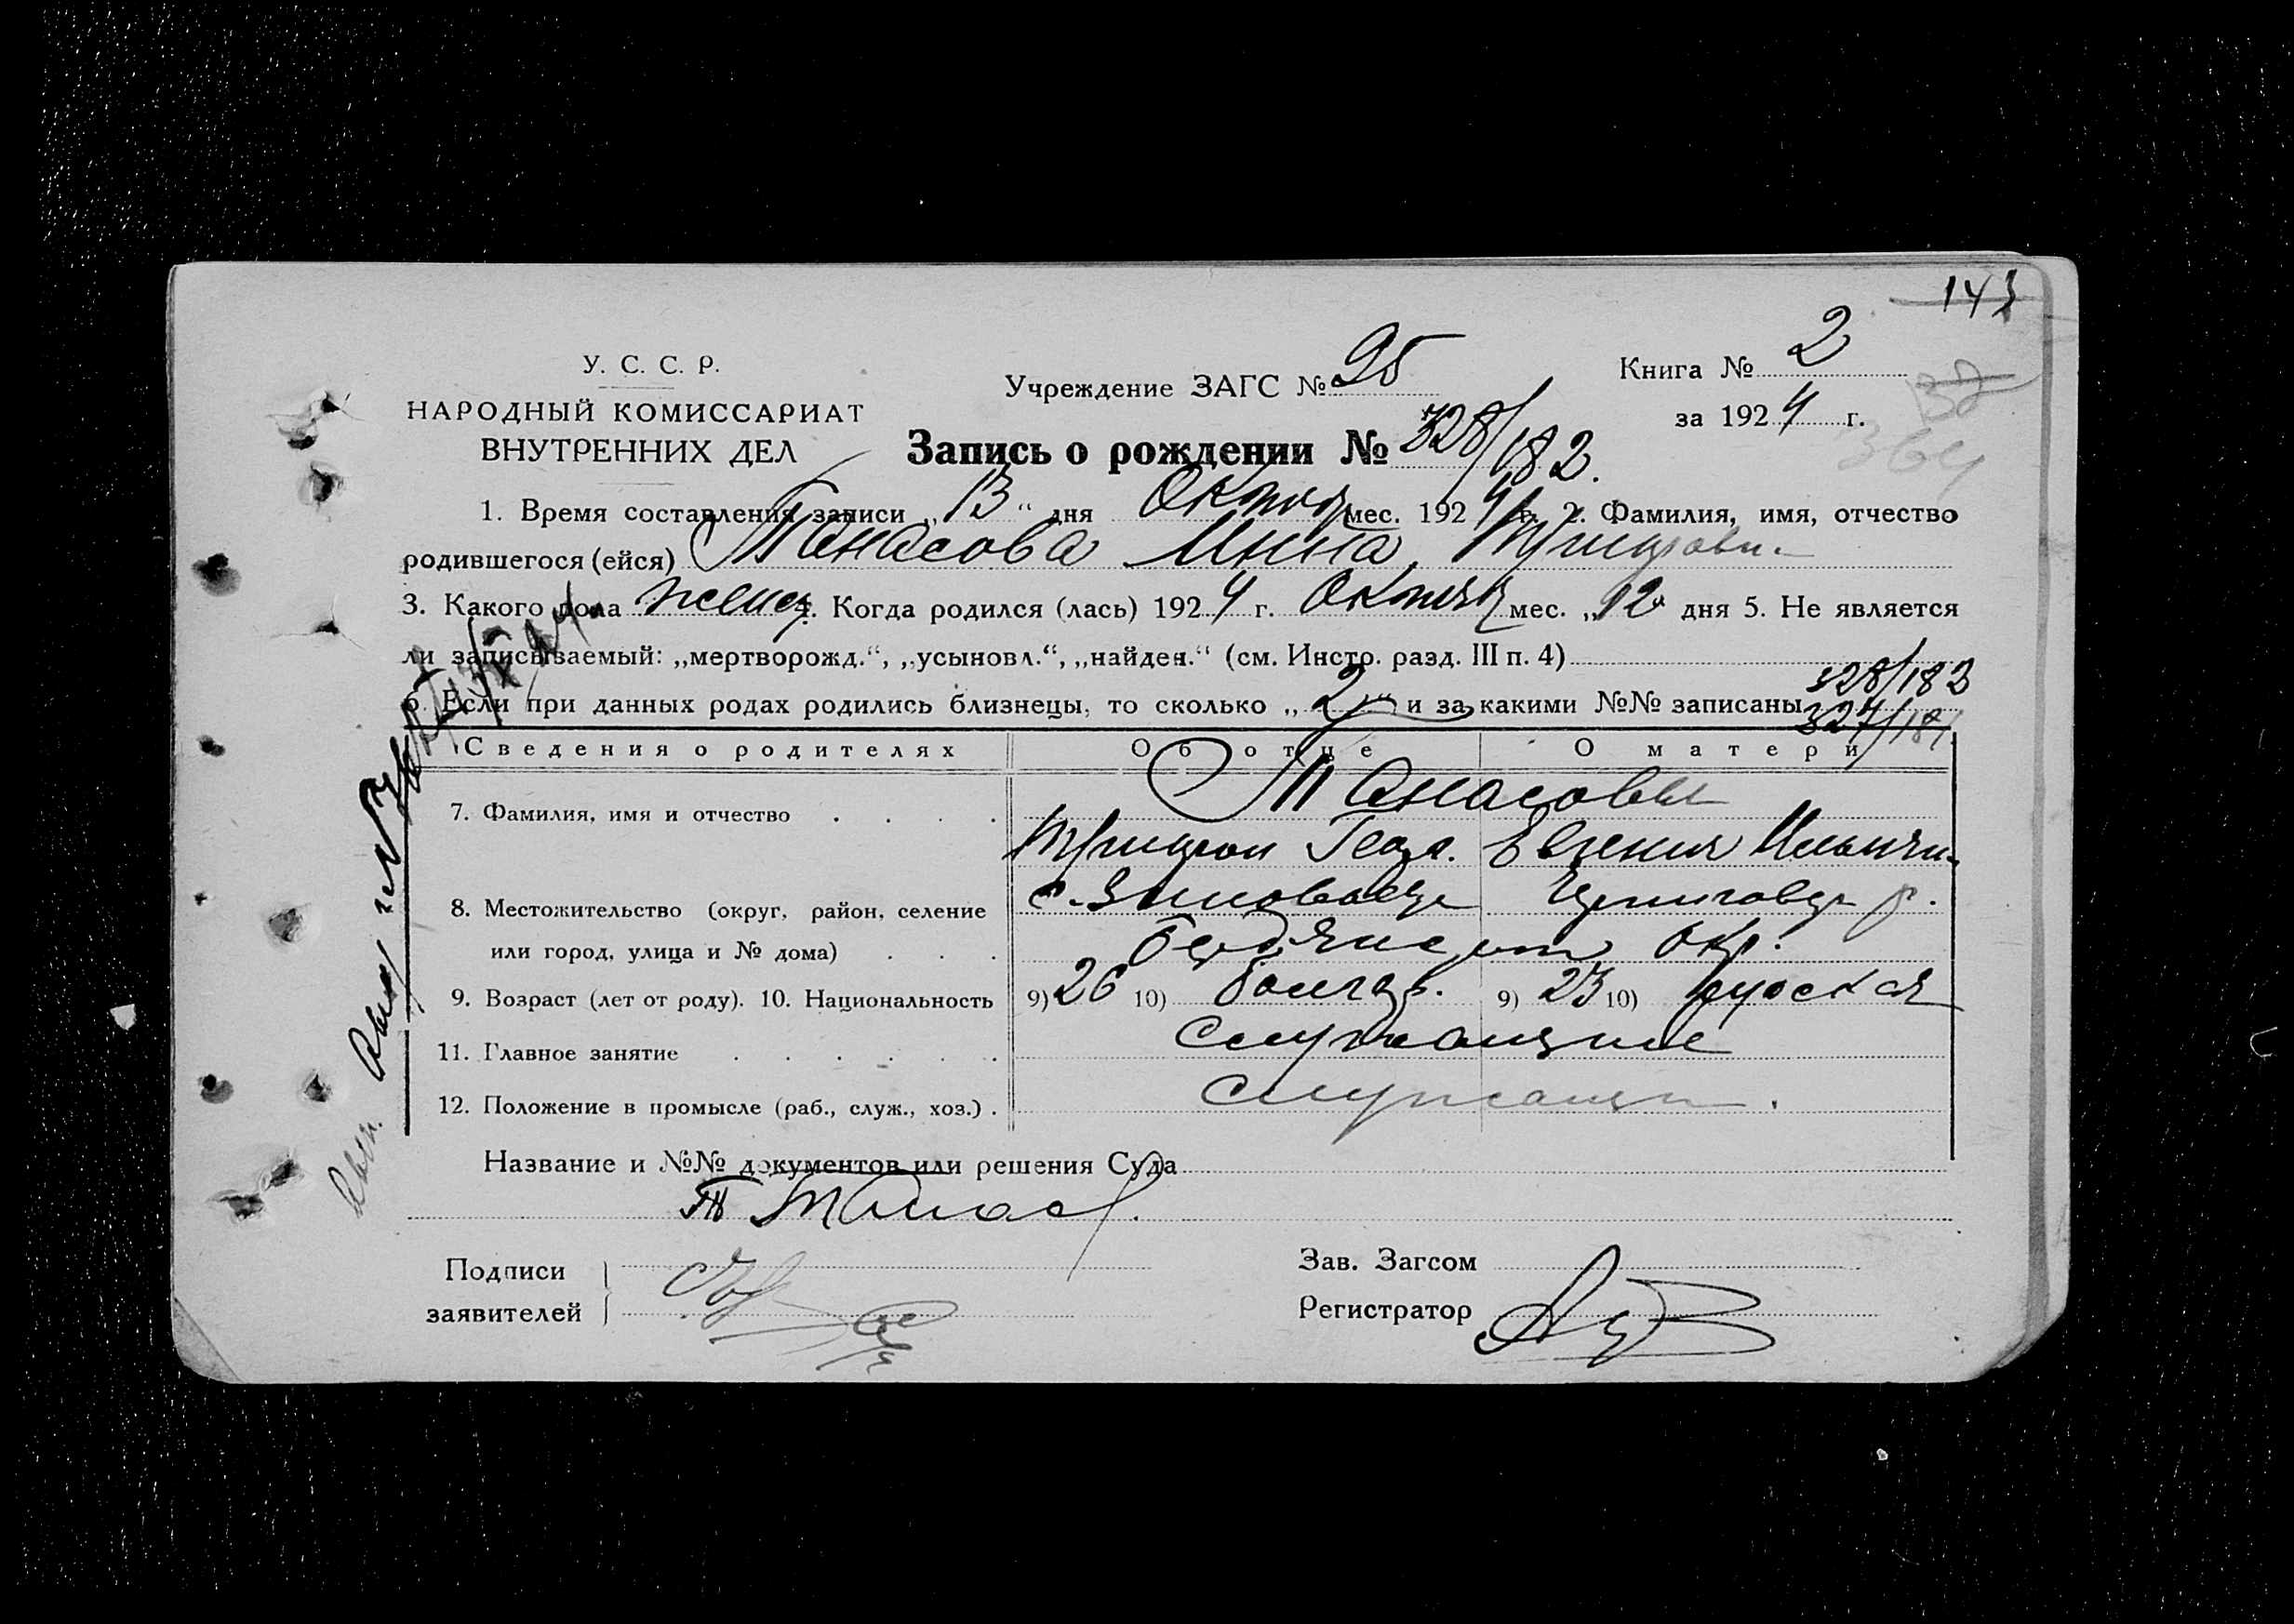 143
У. С. С. Р.
НАРОДНЫЙ КОМИССАРИАТ
ВНУТРЕННИХ ДЕЛ
Учреждение ЗАГС № 95
Книга № 2
за 1924 г.
32
364
Запись о рождении № 328/182.
1. Время составления записи „13“ дня Октяб мес. 1924 г. 2. Фамилия, имя, отчество
родившегося (ейся) Танасова Инна
3. Какого пола женск 4. Когда родился (лась) 1924 г. Октяб мес. „12“ дня 5. Не является
ли записываемый: „мертворожд.“, „усыновл.“, „найден.“ (см. Инстр. разд. III п. 4)
328/182
6. Если при данных родах родились близнецы, то сколько „2“ и за какими №№ записаны 327/181
Сведения о родителях Об отце О матери
Танасовы
7. Фамилия, имя и отчество
Трифон Геор. Евгения Ильинич
8. Местожительство (округ, район, селение
или город, улица и № дома)
окр.
9. Возраст (лет от роду). 10. Национальность 9) 26 10) болгар. 9) 23 10) руская
11. Главное занятие служащие
12. Положение в промысле (раб., служ., хоз.) . служащи.
Название и №№ документов или решения Суда
Подписи
заявителей
Зав. Загсом
Регистратор